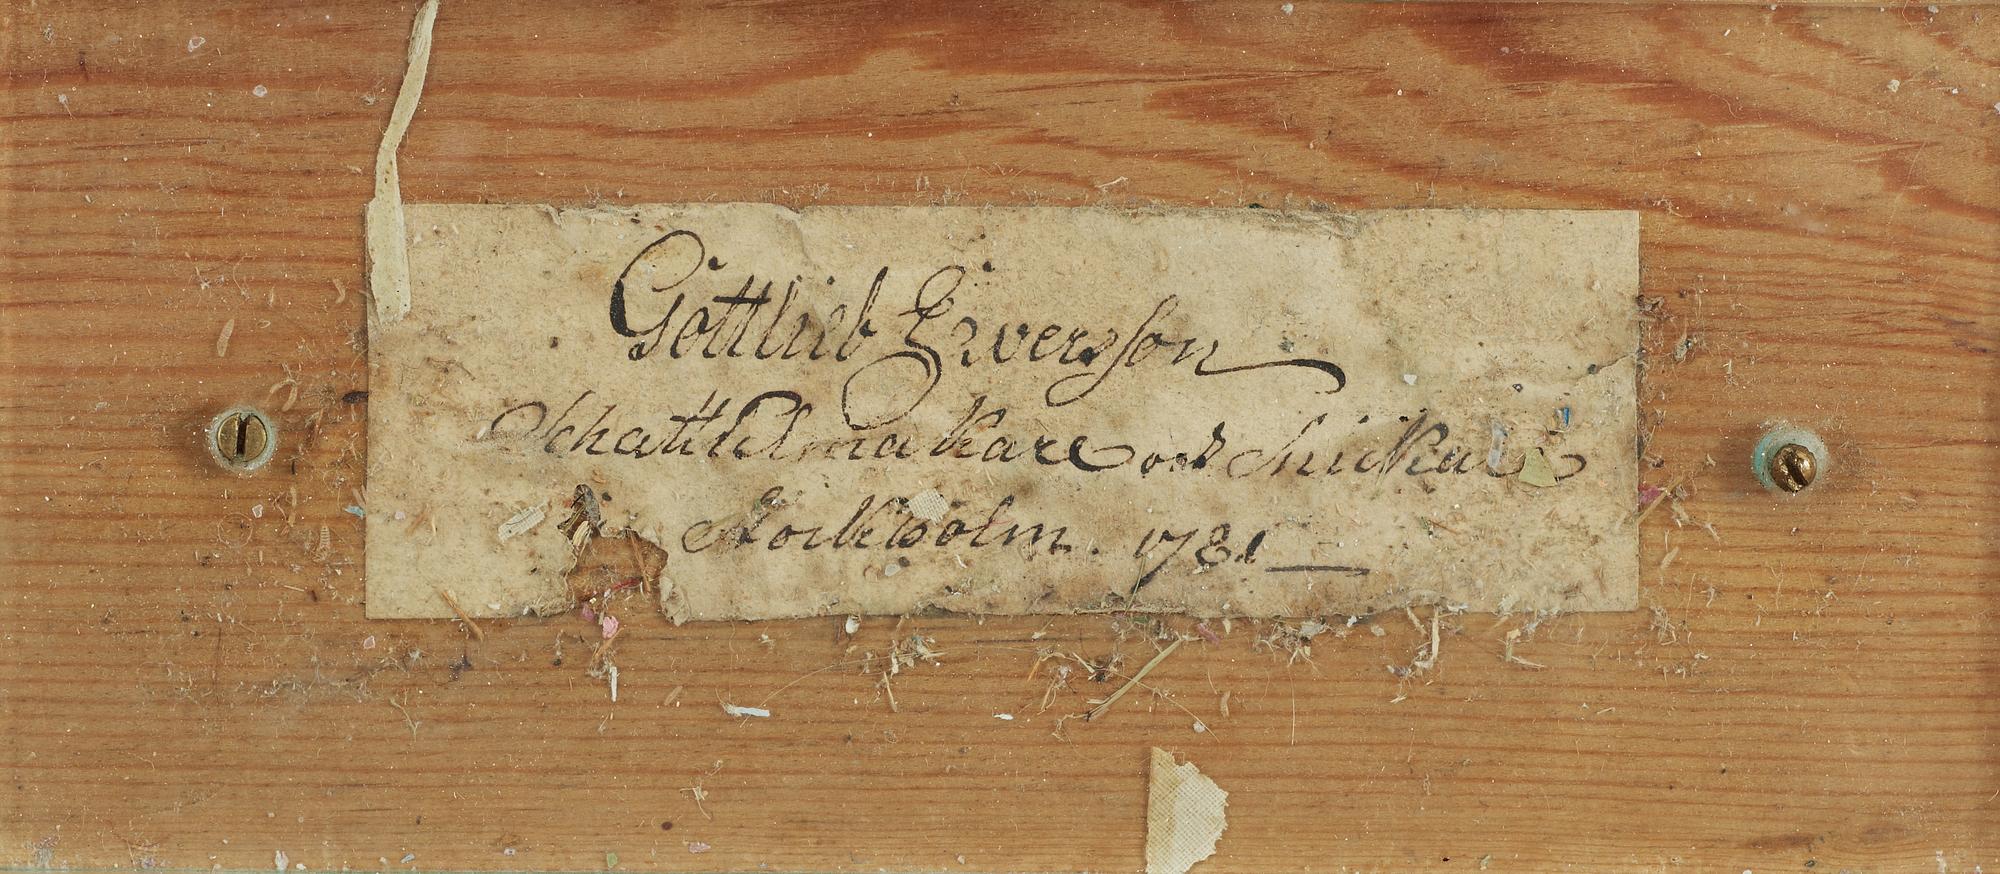 Gottlieb Iwersson
Schattulmakare och Snickare
Stockholm. 1781